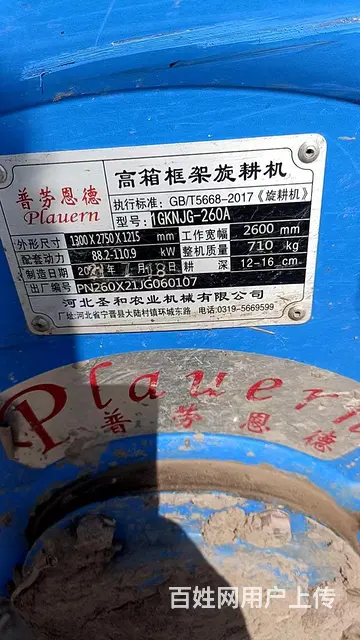 普劳恩德
Plauern
高箱框架旋耕机
执行标准：GB/T5668-2017《旋耕机》
型号：1GKNJG-260A
外形尺寸 1300X2750X1215 mm 工作宽幅 2600 mm
配套动力 88.2-110.9 kW 整机质量 710 kg
制造日期 年 月18日 耕 深 12-16 cm
出厂编号 PN260X21JG060107
河北圣和农业机械有限公司
厂址：河北省宁晋县大陆村镇环城东路 电话：0319-5669599
Plauern
普劳恩德
百姓网用户上传